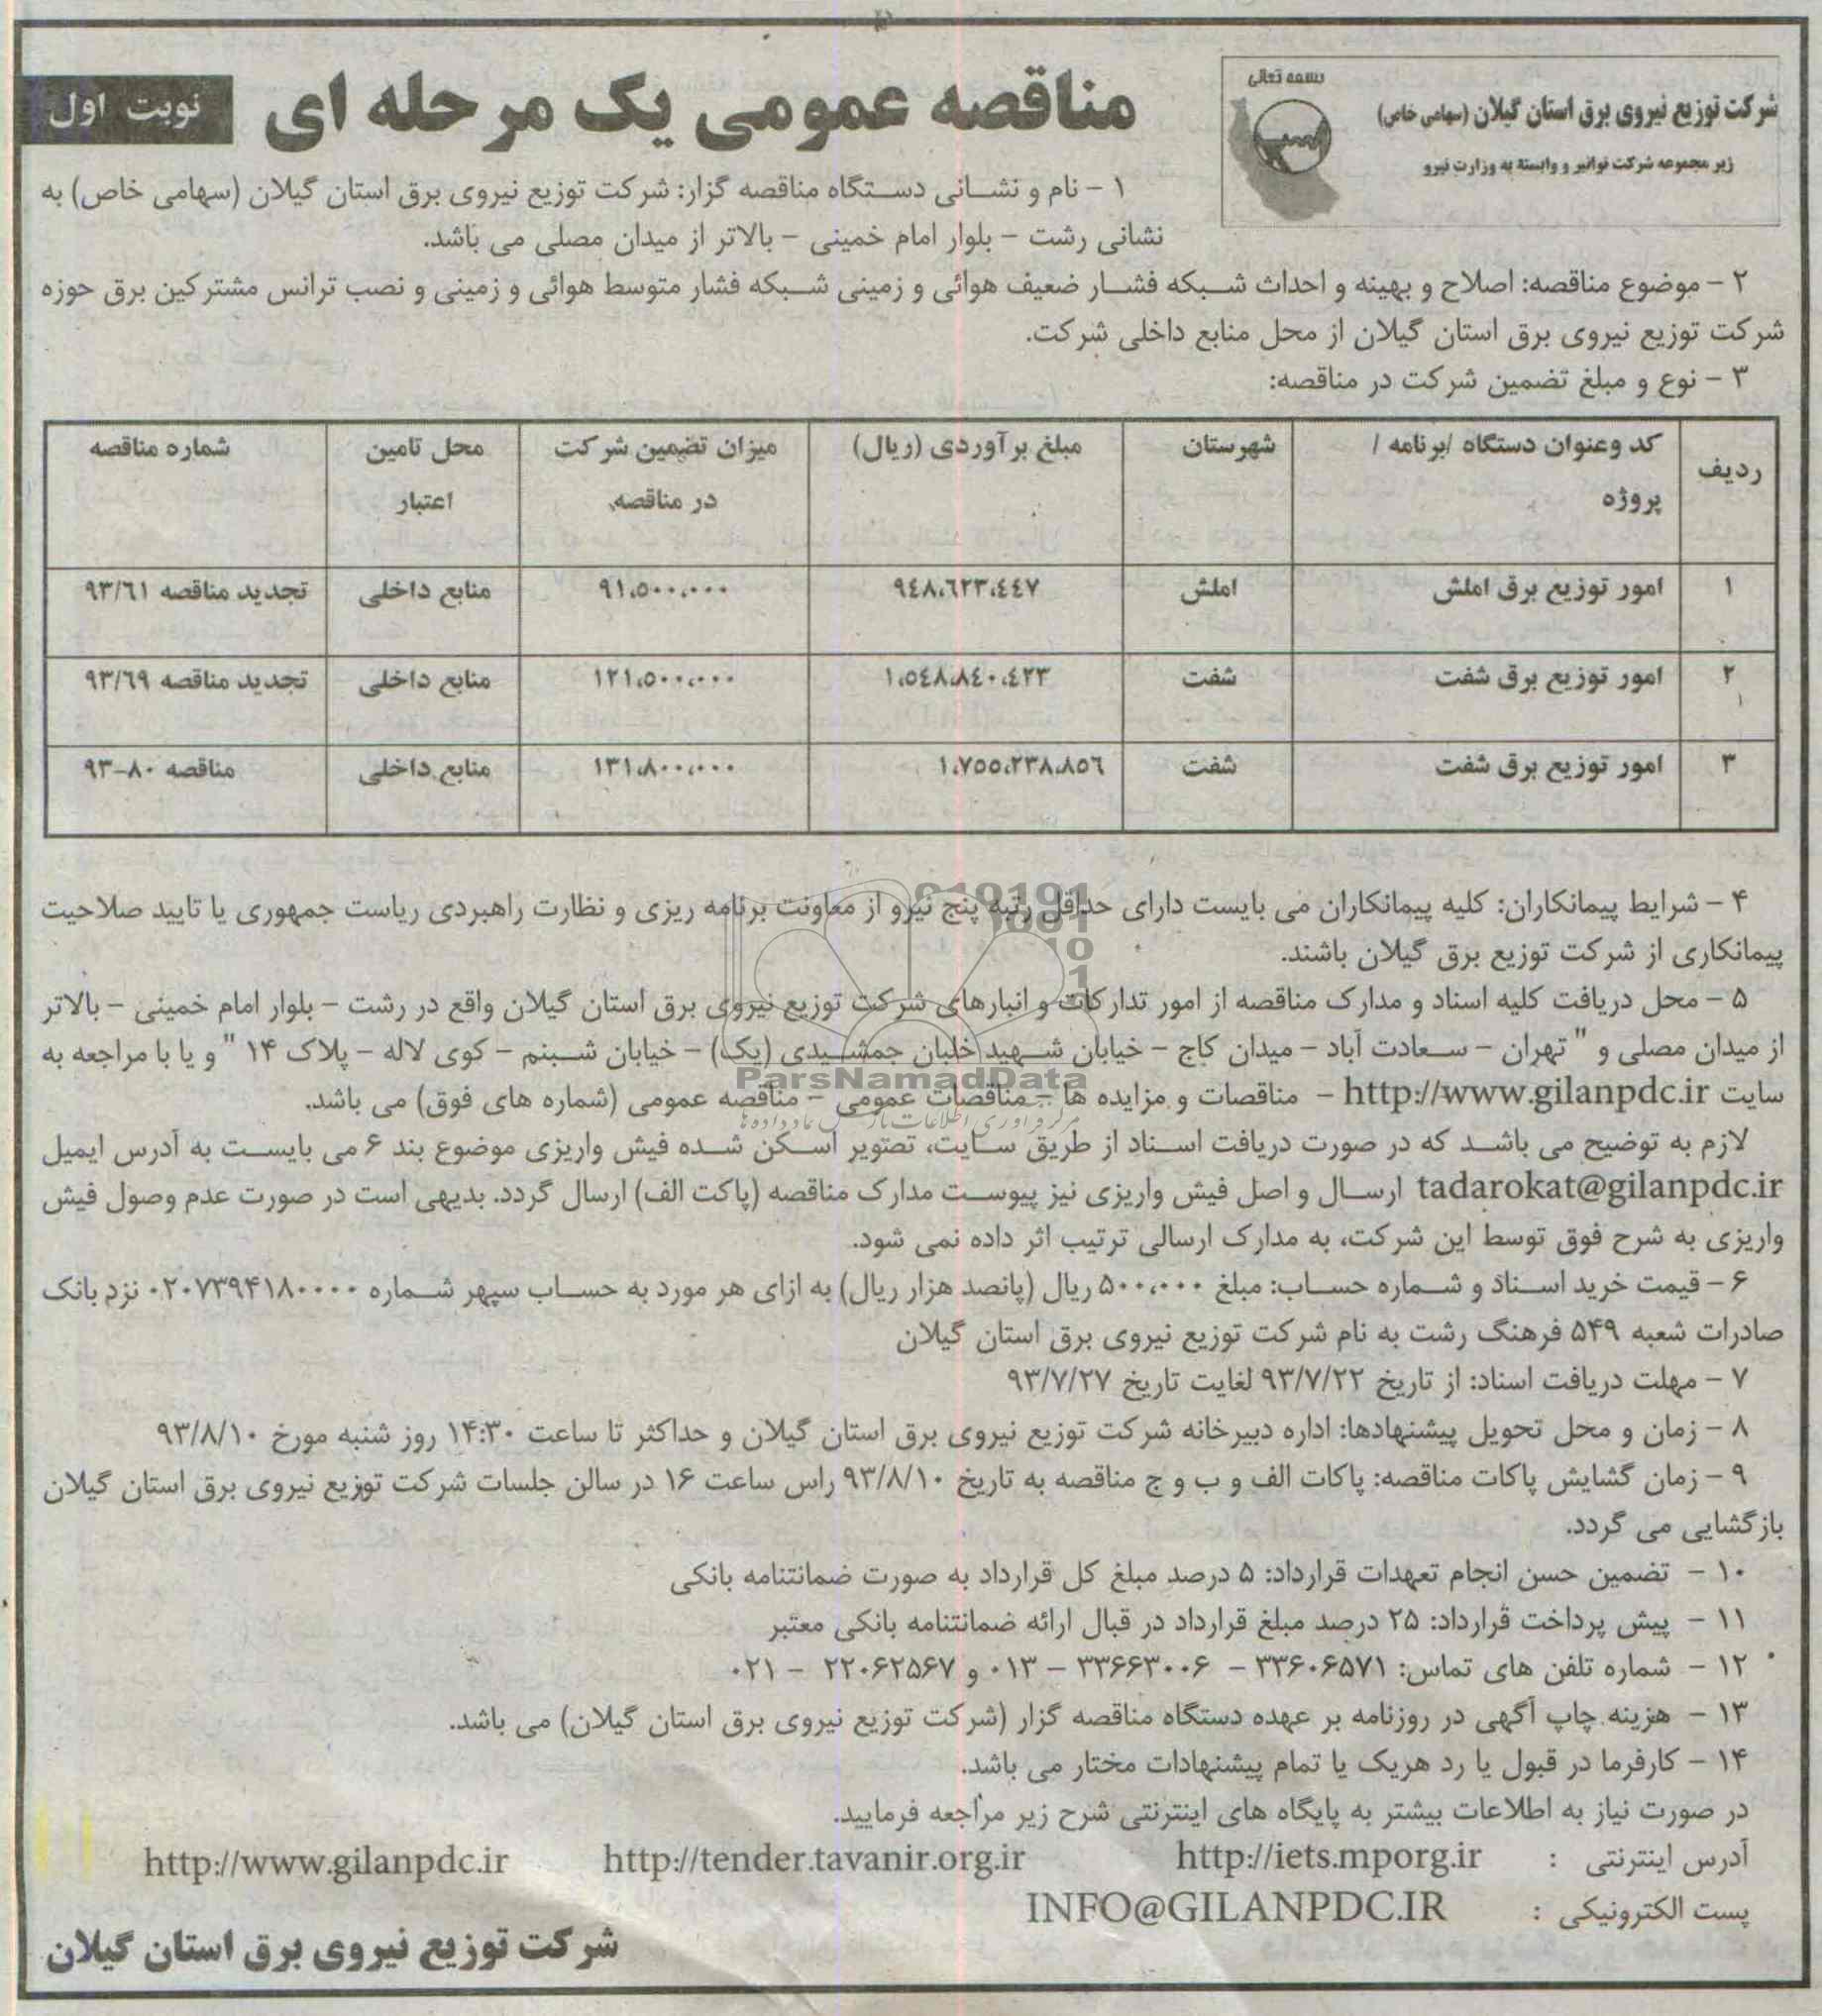 بسمه تعالی
شرکت توزیع نیروی برق استان گیلان (سهامی خاص)
زیر مجموعه شرکت توانیر و وابسته به وزارت نیرو
مناقصه عمومی یک مرحله ای
نوبت اول
۱ – نام و نشانی دستگاه مناقصه گزار: شرکت توزیع نیروی برق استان گیلان (سهامی خاص) به
نشانی رشت – بلوار امام خمینی – بالاتر از میدان مصلی می باشد.
۲ – موضوع مناقصه: اصلاح و بهینه و احداث شبکه فشار ضعیف هوائی و زمینی شبکه فشار متوسط هوائی و زمینی و نصب ترانس مشترکین برق حوزه
شرکت توزیع نیروی برق استان گیلان از محل منابع داخلی شرکت.
۳ – نوع و مبلغ تضمین شرکت در مناقصه:
ردیف | کد وعنوان دستگاه /برنامه / پروژه | شهرستان | مبلغ برآوردی (ریال) | میزان تضمین شرکت در مناقصه | محل تامین اعتبار | شماره مناقصه
۱ | امور توزیع برق املش | املش | ۹٤۸،٦۲۳،٤٤۷ | ۹۱،۵۰۰،۰۰۰ | منابع داخلی | تجدید مناقصه ۹۳/٦۱
۲ | امور توزیع برق شفت | شفت | ۱،۵٤۸،۸٤۰،٤۲۳ | ۱۲۱،۵۰۰،۰۰۰ | منابع داخلی | تجدید مناقصه ۹۳/٦۹
۳ | امور توزیع برق شفت | شفت | ۱،۷۵۵،۲۳۸،۸۵٦ | ۱۳۱،۸۰۰،۰۰۰ | منابع داخلی | مناقصه ۸۰–۹۳
۴ – شرایط پیمانکاران: کلیه پیمانکاران می بایست دارای حداقل رتبه پنج نیرو از معاونت برنامه ریزی و نظارت راهبردی ریاست جمهوری یا تایید صلاحیت
پیمانکاری از شرکت توزیع برق گیلان باشند.
۵ – محل دریافت کلیه اسناد و مدارک مناقصه از امور تدارکات و انبارهای شرکت توزیع نیروی برق استان گیلان واقع در رشت – بلوار امام خمینی – بالاتر
از میدان مصلی و " تهران – سعادت آباد – میدان کاج – خیابان شهید خلبان جمشیدی (یک) – خیابان شبنم – کوی لاله – پلاک ۱۴ " و یا با مراجعه به
سایت http://www.gilanpdc.ir – مناقصات و مزایده ها – مناقصات عمومی – مناقصه عمومی (شماره های فوق) می باشد.
لازم به توضیح می باشد که در صورت دریافت اسناد از طریق سایت، تصویر اسکن شده فیش واریزی موضوع بند ۶ می بایست به آدرس ایمیل
tadarokat@gilanpdc.ir ارسال و اصل فیش واریزی نیز پیوست مدارک مناقصه (پاکت الف) ارسال گردد. بدیهی است در صورت عدم وصول فیش
واریزی به شرح فوق توسط این شرکت، به مدارک ارسالی ترتیب اثر داده نمی شود.
۶ – قیمت خرید اسناد و شماره حساب: مبلغ ۵۰۰،۰۰۰ ریال (پانصد هزار ریال) به ازای هر مورد به حساب سپهر شماره ۰۲۰۷۳۹۴۱۸۰۰۰۰ نزد بانک
صادرات شعبه ۵۴۹ فرهنگ رشت به نام شرکت توزیع نیروی برق استان گیلان
۷ – مهلت دریافت اسناد: از تاریخ ۹۳/۷/۲۲ لغایت تاریخ ۹۳/۷/۲۷
۸ – زمان و محل تحویل پیشنهادها: اداره دبیرخانه شرکت توزیع نیروی برق استان گیلان و حداکثر تا ساعت ۱۴:۳۰ روز شنبه مورخ ۹۳/۸/۱۰
۹ – زمان گشایش پاکات مناقصه: پاکات الف و ب و ج مناقصه به تاریخ ۹۳/۸/۱۰ راس ساعت ۱۶ در سالن جلسات شرکت توزیع نیروی برق استان گیلان
بازگشایی می گردد.
۱۰ – تضمین حسن انجام تعهدات قرارداد: ۵ درصد مبلغ کل قرارداد به صورت ضمانتنامه بانکی
۱۱ – پیش پرداخت قرارداد: ۲۵ درصد مبلغ قرارداد در قبال ارائه ضمانتنامه بانکی معتبر
۱۲ – شماره تلفن های تماس: ۳۳۶۰۶۵۷۱ – ۳۳۶۶۳۰۰۶ – ۰۱۳ و ۲۲۰۶۲۵۶۷ – ۰۲۱
۱۳ – هزینه چاپ آگهی در روزنامه بر عهده دستگاه مناقصه گزار (شرکت توزیع نیروی برق استان گیلان) می باشد.
۱۴ – کارفرما در قبول یا رد هریک یا تمام پیشنهادات مختار می باشد.
در صورت نیاز به اطلاعات بیشتر به پایگاه های اینترنتی شرح زیر مراجعه فرمایید.
آدرس اینترنتی : http://iets.mporg.ir http://tender.tavanir.org.ir http://www.gilanpdc.ir
پست الکترونیکی : INFO@GILANPDC.IR
شرکت توزیع نیروی برق استان گیلان
ParsNamadData